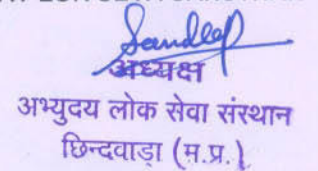 Sandeep
अध्यक्ष
अभ्युदय लोक सेवा संस्थान
छिन्दवाड़ा (म.प्र.)